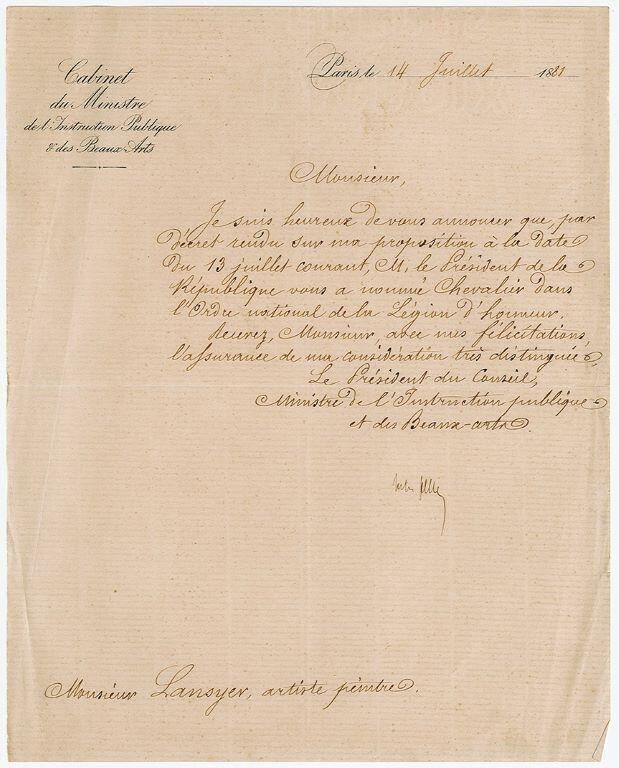 Cabinet
du Ministre
de l'Instruction Publique
& des Beaux-Arts
Paris, le 14 Juillet 1881
Monsieur,
Je suis heureux de vous annoncer que, par
décret rendu sur ma proposition à la date
du 13 juillet courant, M. le Président de la
République vous a nommé Chevalier dans
l'Ordre national de la Légion d'honneur.
Recevez, Monsieur, avec mes félicitations,
l'assurance de ma considération très distinguée.
Le Président du Conseil,
Ministre de l'Instruction publique
et des Beaux-arts.
Jules Ferry
Monsieur Lansyer, artiste peintre.